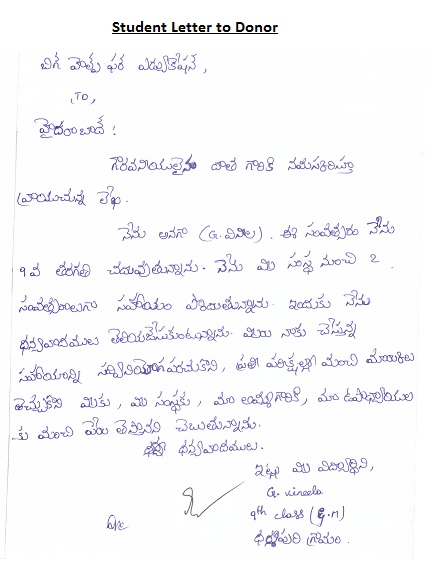 Student Letter to Donor
బిగ్ హెల్ప్ ఫర్ ఎడ్యుకేషన్,
TO,
హైదరాబాద్!
గౌరవనీయులైన దాత గారికి నమస్కరిస్తూ
వ్రాయుచున్న లేఖ.
నేను అనగా (G. వినీల). ఈ సంవత్సరం నేను
9వ తరగతి చదువుతున్నాను. నేను మీ సంస్థ నుంచి 2
సంవత్సరాలుగా సహాయం పొందుతున్నాను. ఇందుకు నేను
ధన్యవాదములు తెలియజేసుకుంటున్నాను. మీరు నాకు చేస్తున్న
సహాయాన్ని సద్వినియోగపరచుకొని, ప్రతీ పరీక్షల్లో మంచి మార్కులు
తెచ్చుకొని మీకు, మీ సంస్థకు, మా అమ్మగారికి, మా ఉపాధ్యాయుల
కు మంచి పేరు తెస్తానని చెబుతున్నాను.
ధన్యవాదములు.
ఇట్లు మీ విద్యార్థిని,
G. vineela
9th class (E.M)
గ్రామం.